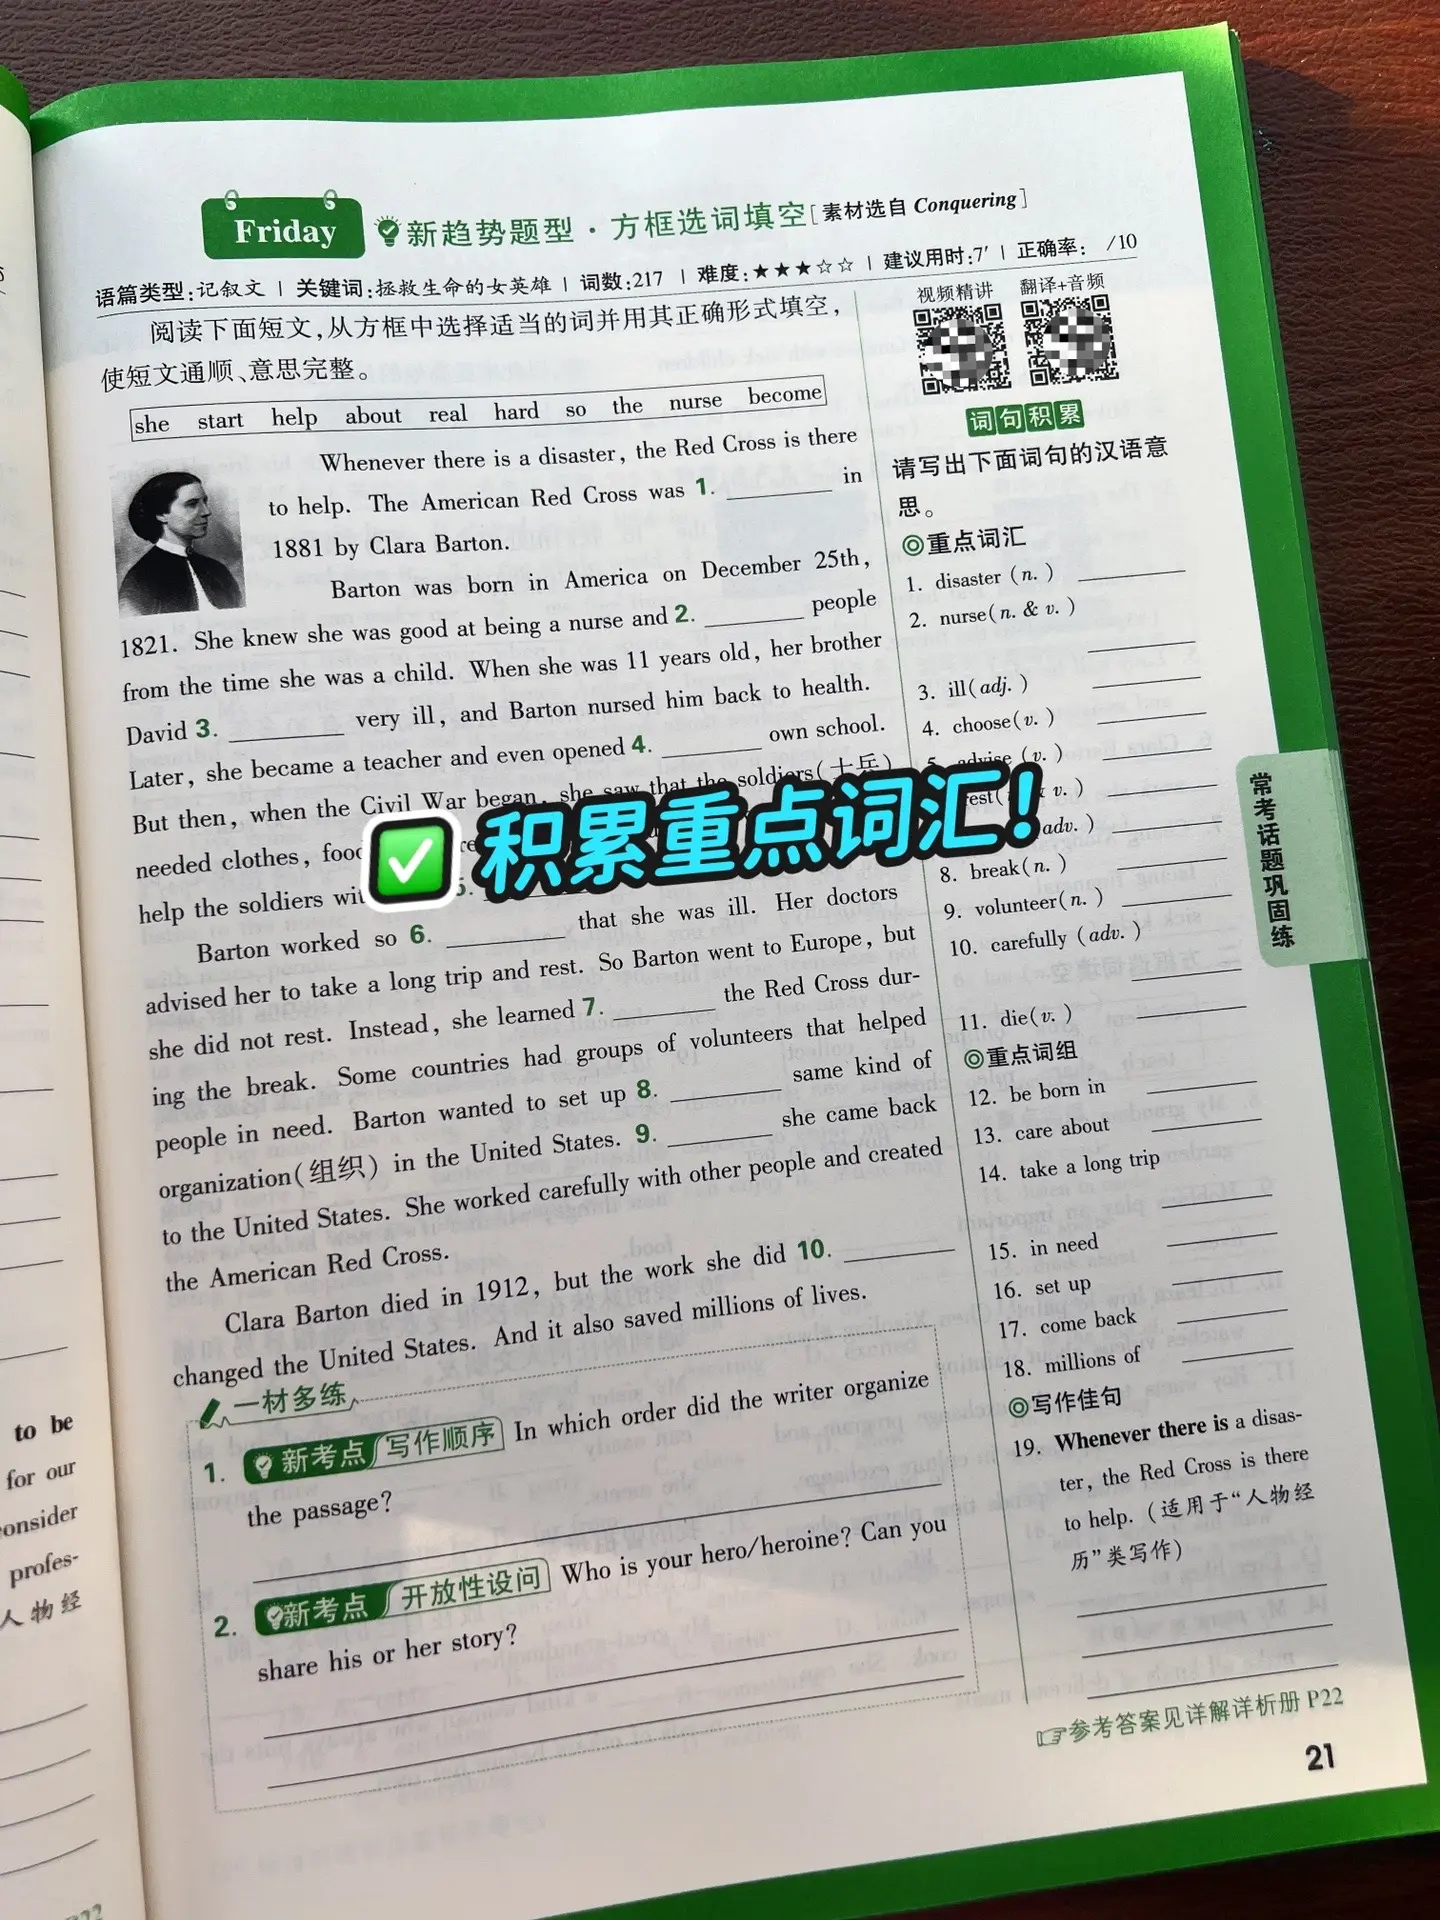 Friday 新趋势题型·方框选词填空[素材选自 Conquering]
语篇类型:记叙文 | 关键词:拯救生命的女英雄 | 词数:217 | 难度:★★★☆☆ | 建议用时:7′ | 正确率: /10
阅读下面短文,从方框中选择适当的词并用其正确形式填空,
使短文通顺、意思完整。
she start help about real hard so the nurse become
Whenever there is a disaster, the Red Cross is there
to help. The American Red Cross was 1. ________ in
1881 by Clara Barton.
Barton was born in America on December 25th,
1821. She knew she was good at being a nurse and 2. ________ people
from the time she was a child. When she was 11 years old, her brother
David 3. ________ very ill, and Barton nursed him back to health.
Later, she became a teacher and even opened 4. ________ own school.
But then, when the Civil War began, she saw that the soldiers(士兵)
needed clothes, food
help the soldiers 5. ________
Barton worked so 6. ________ that she was ill. Her doctors
advised her to take a long trip and rest. So Barton went to Europe, but
she did not rest. Instead, she learned 7. ________ the Red Cross dur-
ing the break. Some countries had groups of volunteers that helped
people in need. Barton wanted to set up 8. ________ same kind of
organization(组织) in the United States. 9. ________ she came back
to the United States. She worked carefully with other people and created
the American Red Cross.
Clara Barton died in 1912, but the work she did 10. ________
changed the United States. And it also saved millions of lives.
一材多练
1. 新考点 写作顺序 In which order did the writer organize
the passage?
2. 新考点 开放性设问 Who is your hero/heroine? Can you
share his or her story?
视频精讲 翻译+音频
词句积累
请写出下面词句的汉语意
思。
◎重点词汇
1. disaster (n.) ________
2. nurse(n. & v.)
________
3. ill(adj.) ________
4. choose(v.) ________
5. advise (v.) ________
v.) ________
adv.) ________
8. break(n.) ________
9. volunteer(n.) ________
10. carefully (adv.)
________
11. die(v.) ________
◎重点词组
12. be born in ________
13. care about ________
14. take a long trip
________
15. in need ________
16. set up ________
17. come back ________
18. millions of ________
◎写作佳句
19. Whenever there is a disas-
ter, the Red Cross is there
to help. (适用于“人物经
历”类写作)
参考答案见详解详析册 P22
21
常考话题巩固练
积累重点词汇!
to be
for our
onsider
profes-
人物经